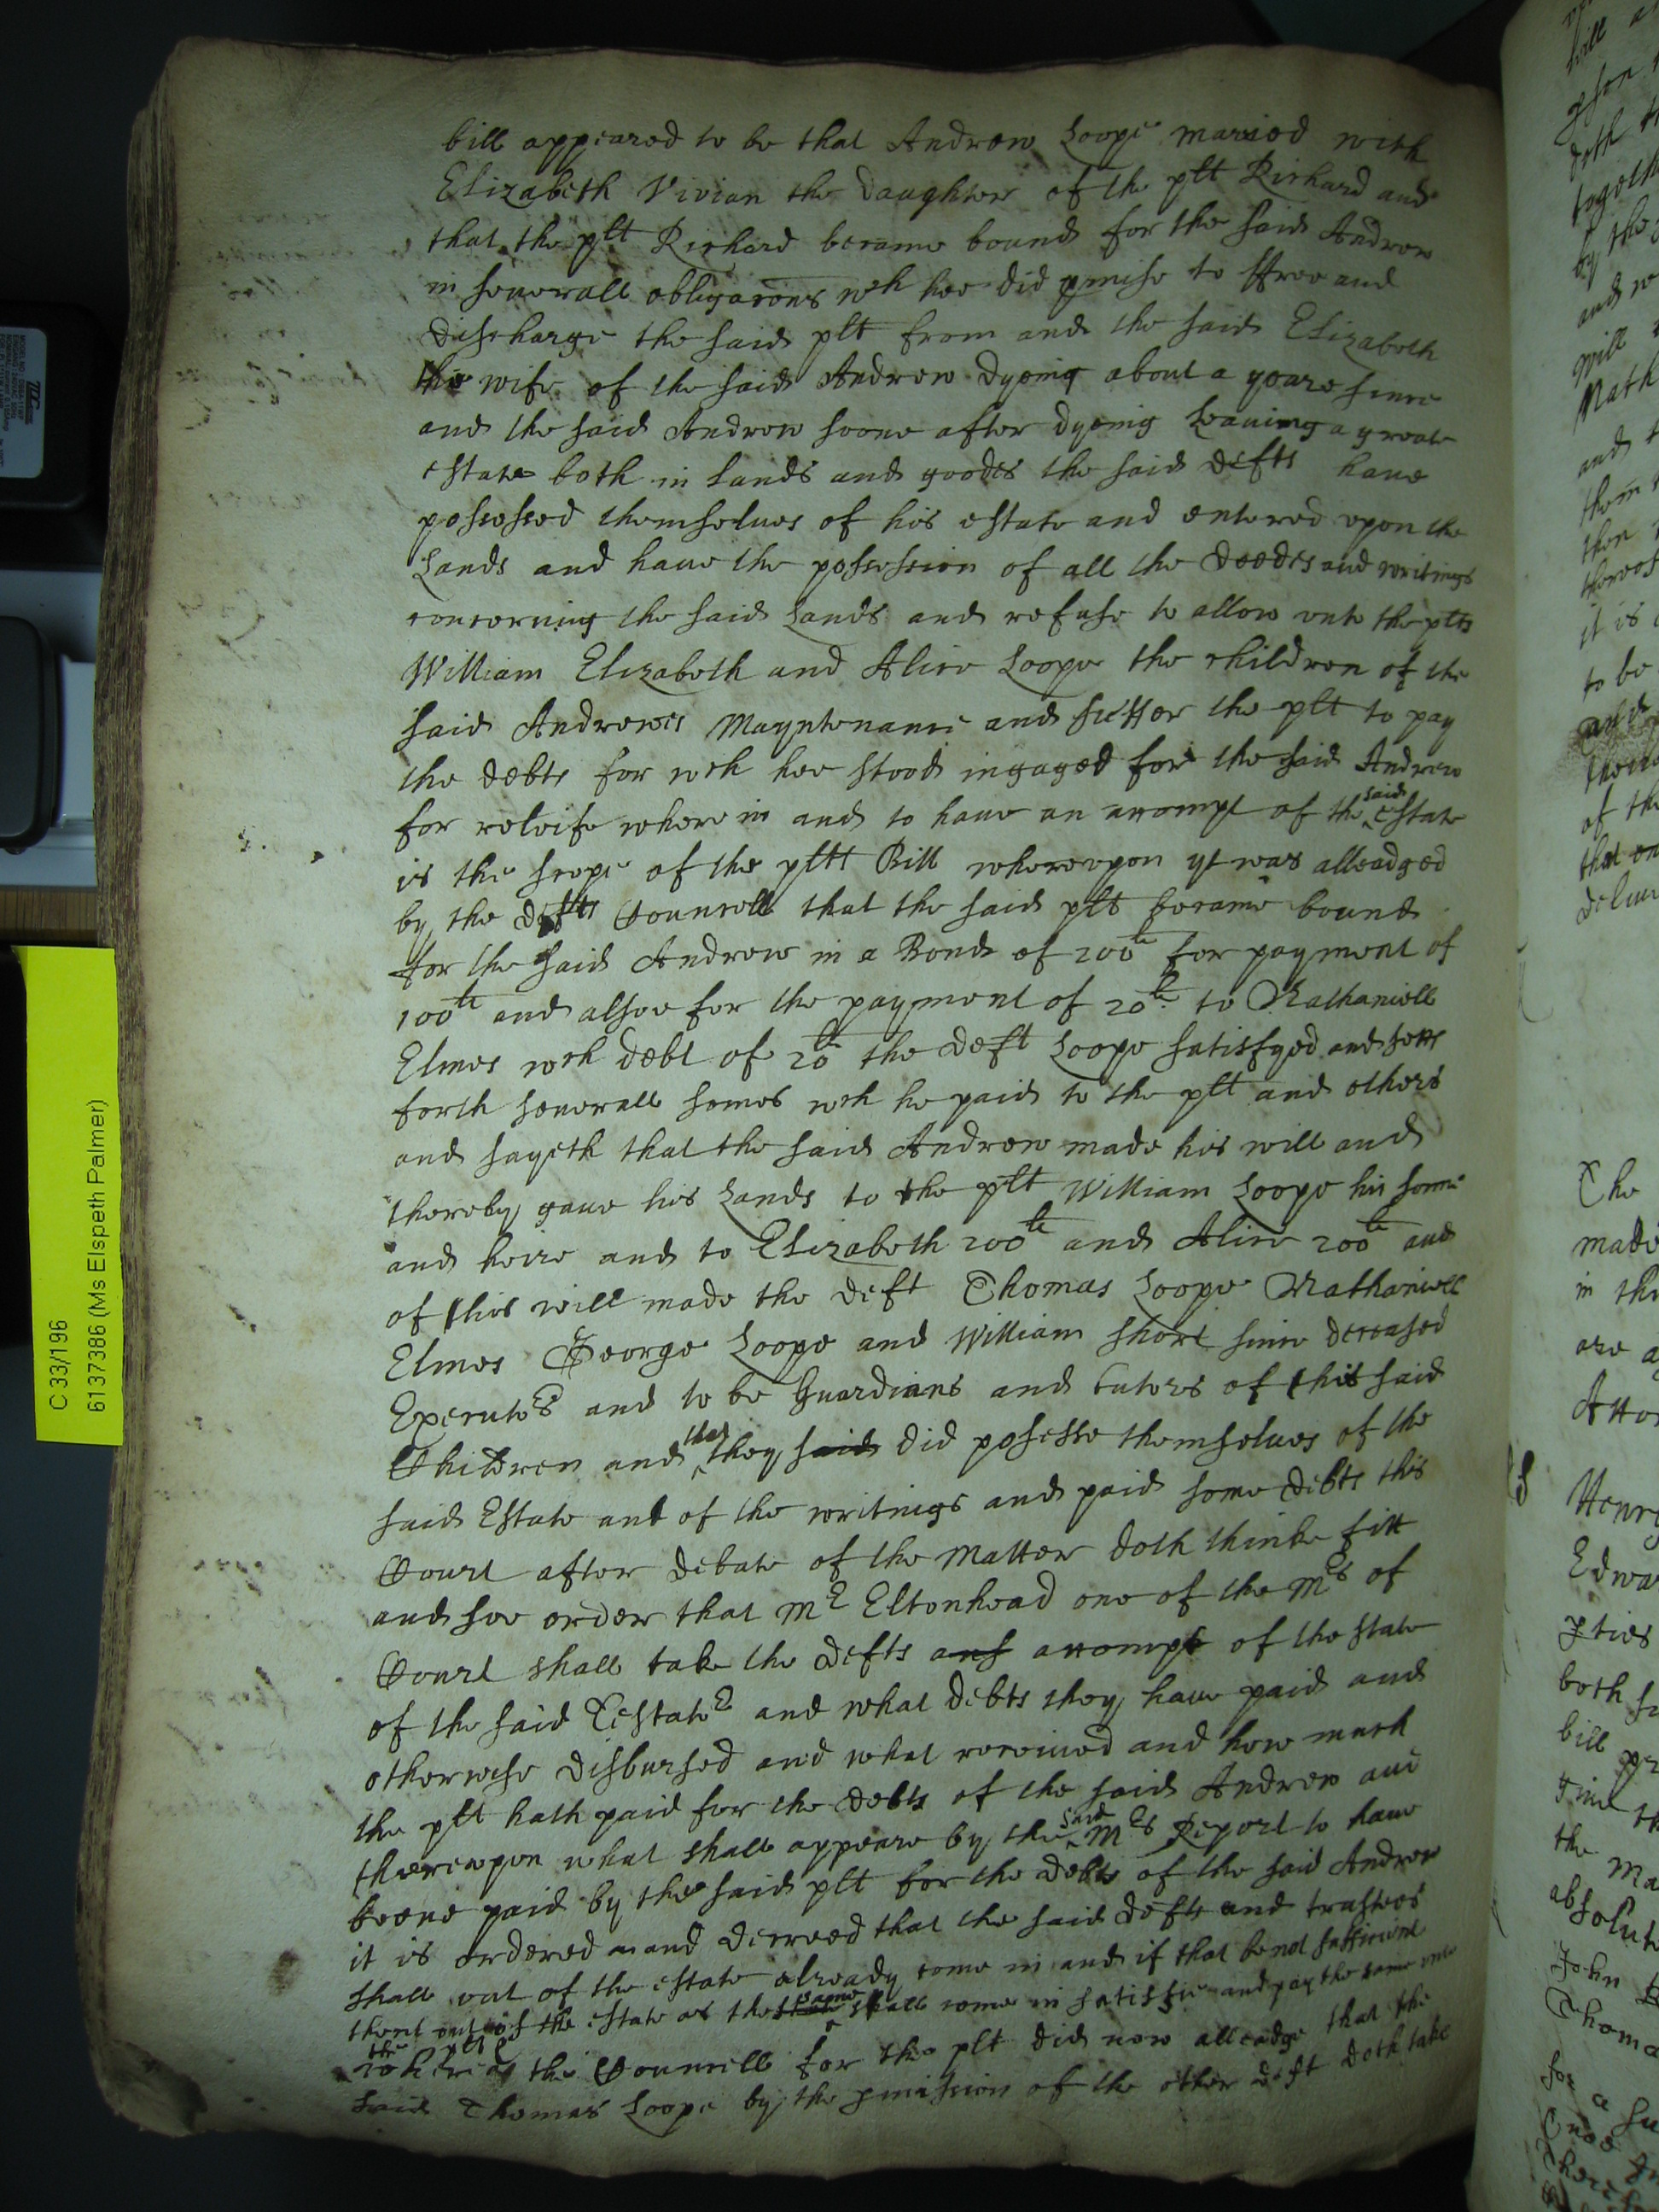 bill appeared to be that Andrew Loope maried with
Elizabeth Vivian the daughter of the plt Richard and
that the plt Richard became bound for the said Andrew
in severall obligacons wch hee did pmise to ffree and
discharge the said plt from and the said Elizabeth
the wife of the said Andrew dyeing about a yeare since
and the said Andrew soone after dyeing Leaving a greate
estate both in Lands and goodes the said defts have
possessed themselves of his estate and entered vpon the
Lands and have the possession of all the deedes and writings
concerning the said Lands and refuse to allow vnto the plts
William Elizabeth and Alice Loope the children of the
said Andrewes Mayntenance and suffer the plt to pay
the debts for wch hee stood ingaged for the said Andrew
for releife where in and to have an accompt of the said estate
is the scope of the pltts Bill wherevpon yt was alleadged
by the defts Councell that the said plt became bound
for the said Andrew in a Bond of 200li for payment of
100li and alsoe for the payment of 20li to Nathaniell
Elmes wch debt of 20li the deft Loope satisfyed and setts
forth severall somes wch he paid to the plt and others
and sayeth that the said Andrew made his will and
thereby gave his Lands to the plt William Loope his sonne
and heire and to Elizabeth 200li and Alice 200li and
of this will made the deft Thomas Loope Nathaniell
Elmes George Loope and William Short since deceased
Executors and to be Guardians and tutors of this said
Children and that they said did possesse themselves of the
said Estate and of the writings and paid some debts this
Court after debate of the Matter doth thinke fitt
and soe order that Mr Eltonhead one of the Mrs of
Court shall take the defts ans accompt of the state
of the said Testator and what debts they have paid and
otherwise disbursed and what received and how much
the plt hath paid for the debts of the said Andrew and
therevpon what shall appeare by the said Mrs Report to have
beene paid by the said plt for the debts of the said Andrew
it is ordered and decreed that the said defts and trustees
shall out of the estate already come in and if that be not sufficient
then out of the estate as the same shall come in satisfie and pay the same vnto
the plt
whereas the Councell for the plt did now alleadge that the
said Thomas Loope by the pmission of the other deft doth take
C 33/196
6137386 (Ms Elspeth Palmer)